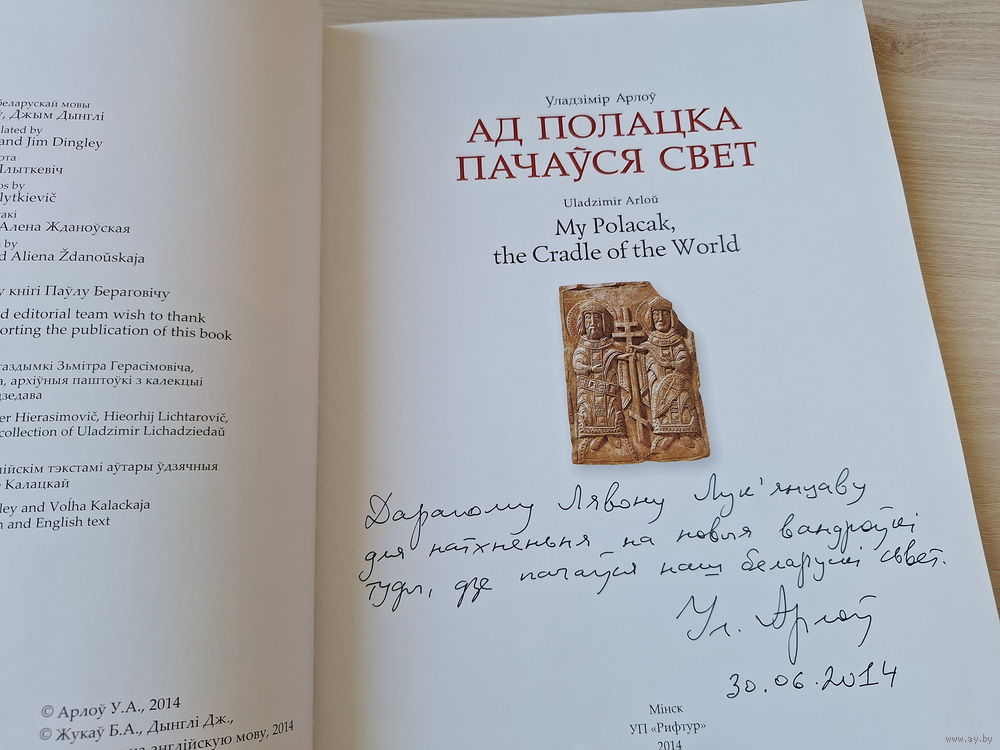 беларускай мовы
ў, Джым Дынглі
lated by
and Jim Dingley
ота
Плыткевіч
os by
lytkievič
акі
Алена Жданоўская
by
d Aliena Ždanoŭskaja
у кнігі Паўлу Бераговічу
d editorial team wish to thank
orting the publication of this book
газдымкі Зьмітра Герасімовіча,
а, архіўныя паштоўкі з калекцыі
дзедава
er Hierasimovič, Hieorhij Lichtarovič,
collection of Uladzimir Lichadziedaŭ
ійскім тэкстамі аўтары ўдзячныя
е Калацкай
ley and Voĺha Kalackaja
n and English text
© Арлоў У.А., 2014
© Жукаў Б.А., Дынглі Дж.,
на англійскую мову, 2014
Уладзімір Арлоў
АД ПОЛАЦКА
ПАЧАЎСЯ СВЕТ
Uladzimir Arloŭ
My Polacak,
the Cradle of the World
Дарагому Лявону Лук'янцаву
для натхненьня на новыя вандроўкі
туды, дзе пачаўся наш беларускі сьвет.
Ул. Арлоў
30.06.2014
Мінск
УП «Рифтур»
2014
www.ay.by